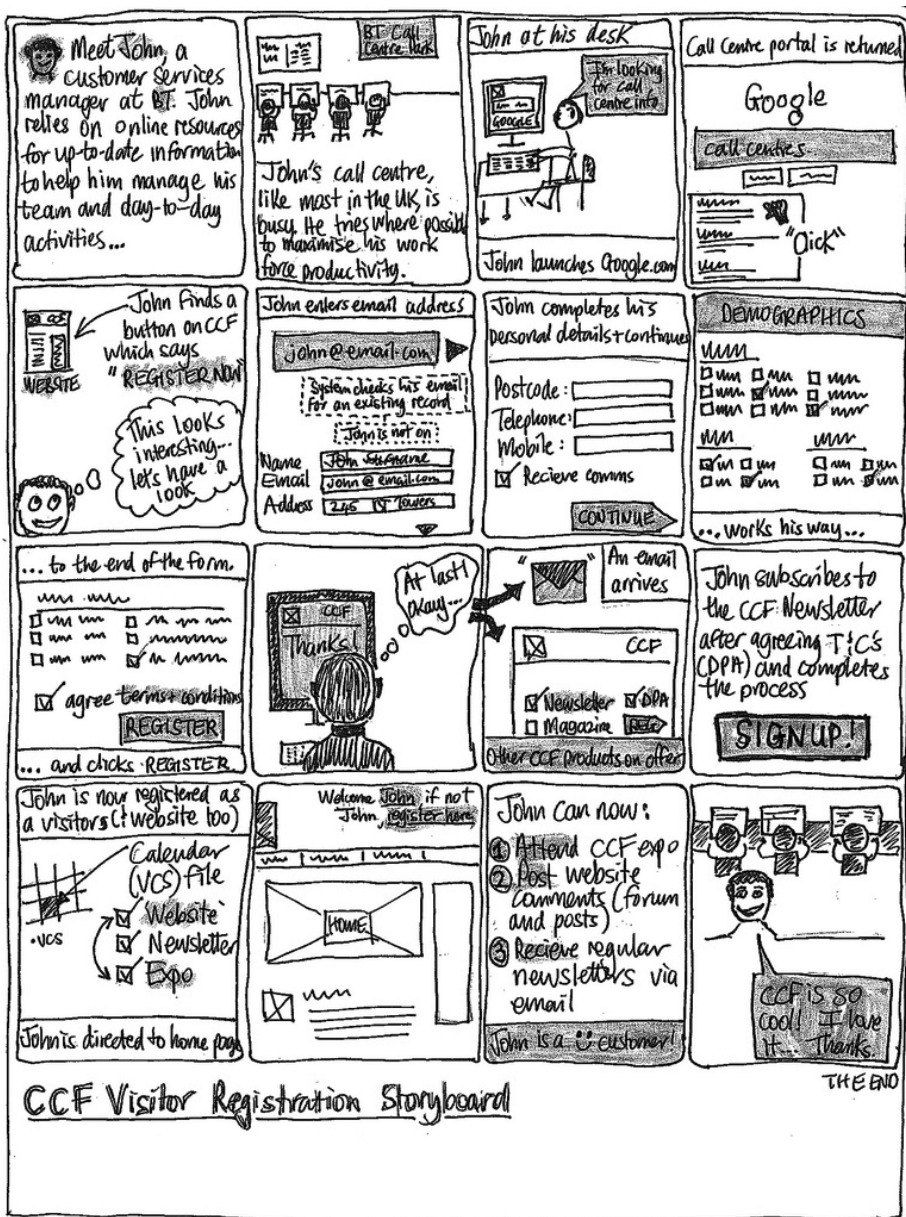 Meet John, a
customer services
manager at BT. John
relies on online resources
for up-to-date information
to help him manage his
team and day-to-day
activities...
BT Call
Centre Park
John's call centre,
like most in the UK, is
busy. He tries where possible
to maximise his work
force productivity.
John at his desk
I'm looking
for call
centre info
GOOGLE
John launches Google.com
Call Centre portal is returned
Google
call centres
"Click"
CCF
WEBSITE
John finds a
button on CCF
which says
"REGISTER NOW"
This looks
interesting...
let's have a
look
John enters email address
john@email.com
System checks his email
for an existing record
John is not on
Name John Surname
Email john@email.com
Address 245 Towers
John completes his
personal details + continues
Postcode:
Telephone:
Mobile:
Recieve comms
CONTINUE
DEMOGRAPHICS
...works his way...
... to the end of the form.
agree terms + conditions
REGISTER
... and clicks REGISTER
CCF
Thanks!
At last!
okay...
An email
arrives
CCF
Newsletter DPA
Magazine
Other CCF products on offer
John subscribes to
the CCF Newsletter
after agreeing T&C's
(DPA) and completes
the process
SIGNUP!
John is now registered as
a visitors (& website too)
Calendar
(VCS) file
.VCS
Website
Newsletter
Expo
John is directed to home page
Welcome John if not
John register here
HOME
John can now:
① Attend CCF expo
② Post website
comments (forum
and posts)
③ Recieve regular
newsletters via
email
John is a customer!
CCF is so
cool! I love
it... Thanks.
THE END
CCF Visitor Registration Storyboard